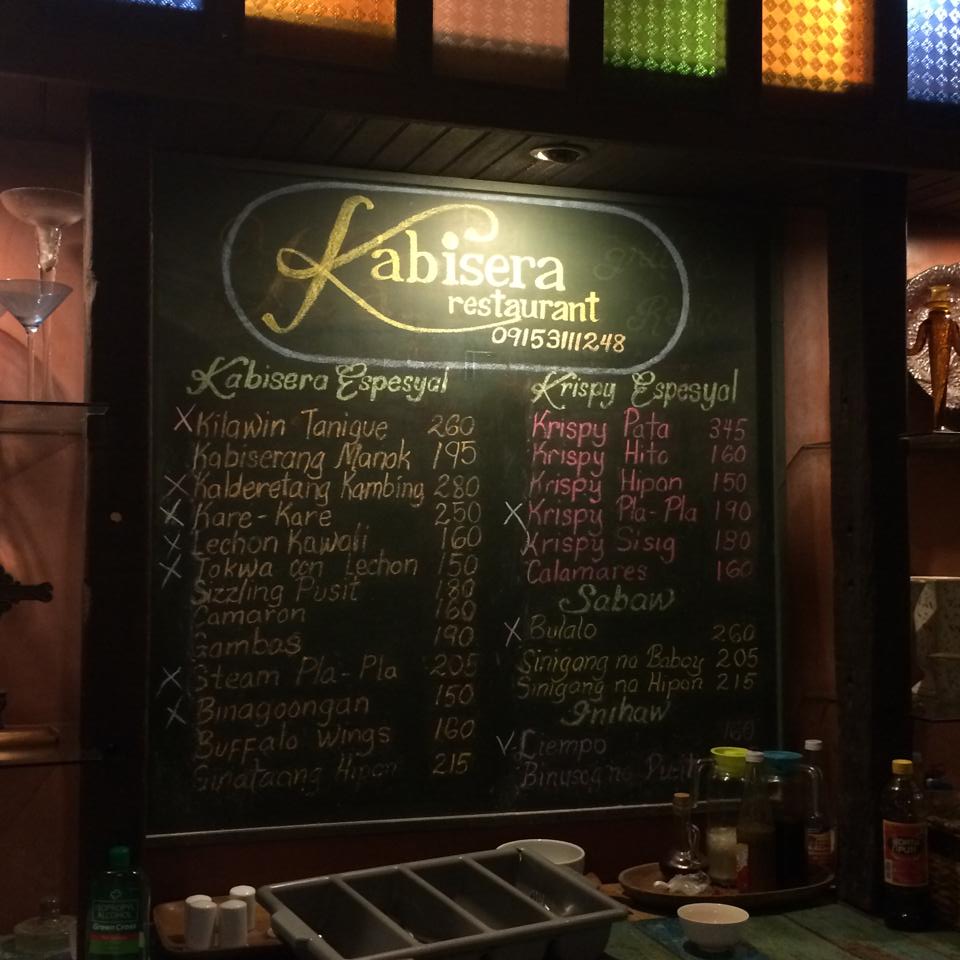 Kabisera
restaurant
09153111248
Kabisera Espesyal
X Kilawin Tanigue 260
Kabiserang Manok 195
X Kalderetang Kambing 280
X Kare-Kare 250
X Lechon Kawali 160
X Tokwa con Lechon 150
Sizzling Pusit 180
Camaron 160
Gambas 190
X Steam Pla-Pla 205
X Binagoongan 150
Buffalo Wings 160
Ginataang Hipon 215
Krispy Espesyal
Krispy Pata 345
Krispy Hito 160
Krispy Hipon 150
X Krispy Pla-Pla 190
Krispy Sisig 180
Calamares 160
Sabaw
X Bulalo 260
Sinigang na Baboy 205
Sinigang na Hipon 215
Inihaw
Liempo 160
Binusog na Pusit
ISOPROPYL
ALCOHOL
Green Cross